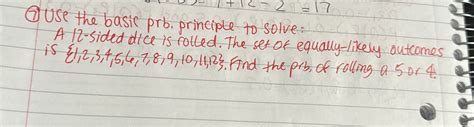 1+12-2=17
⑦ Use the basic prb. principle to solve:
A 12-sided dice is rolled. The set of equally-likely outcomes
is {1,2,3,4,5,6,7,8,9,10,11,12}. Find the prb. of rolling a 5 or 4.